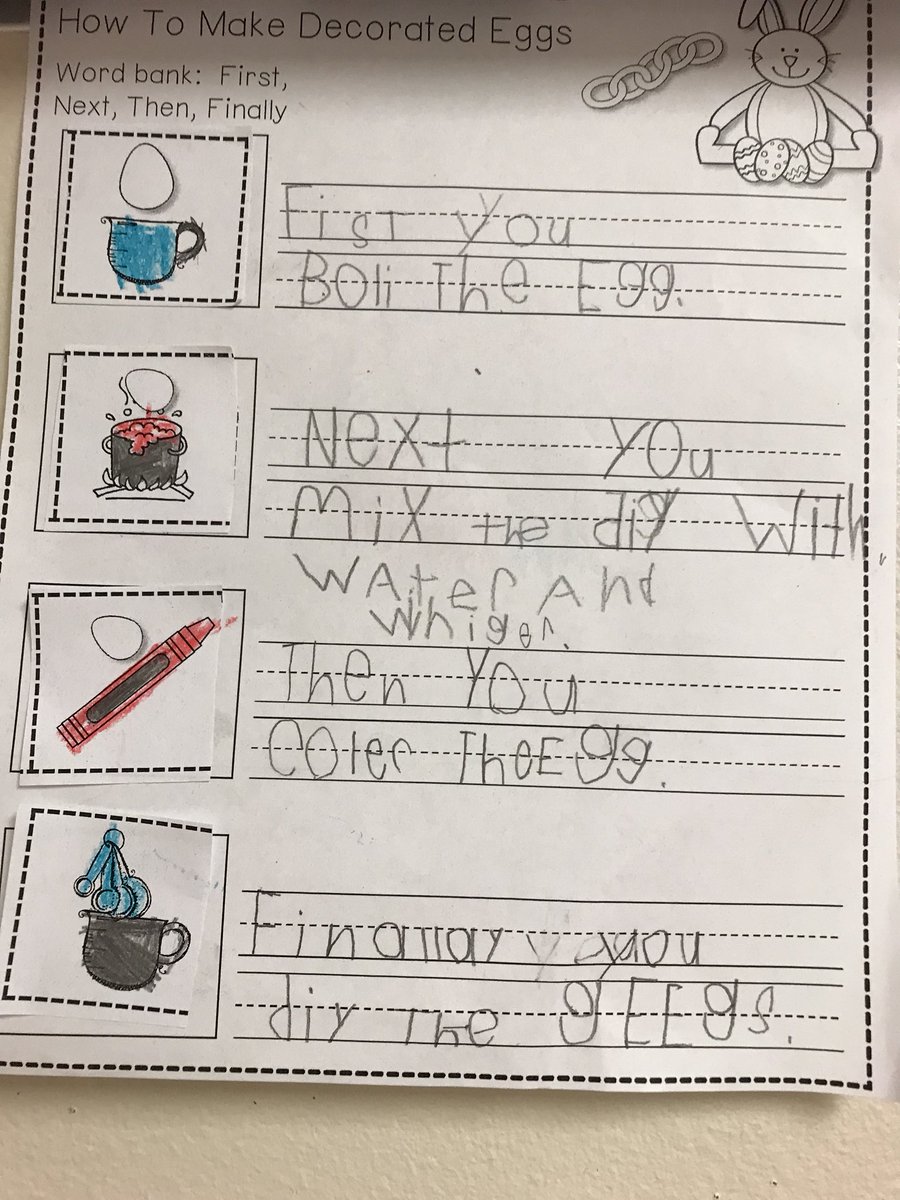 How To Make Decorated Eggs
Word bank: First,
Next, Then, Finally
Fist you
Boli The Egg.
Next you
Mix the diy With
WAter And
Whiger.
Then You
Coler The Egg.
Finallay you
diy The gEEgs.